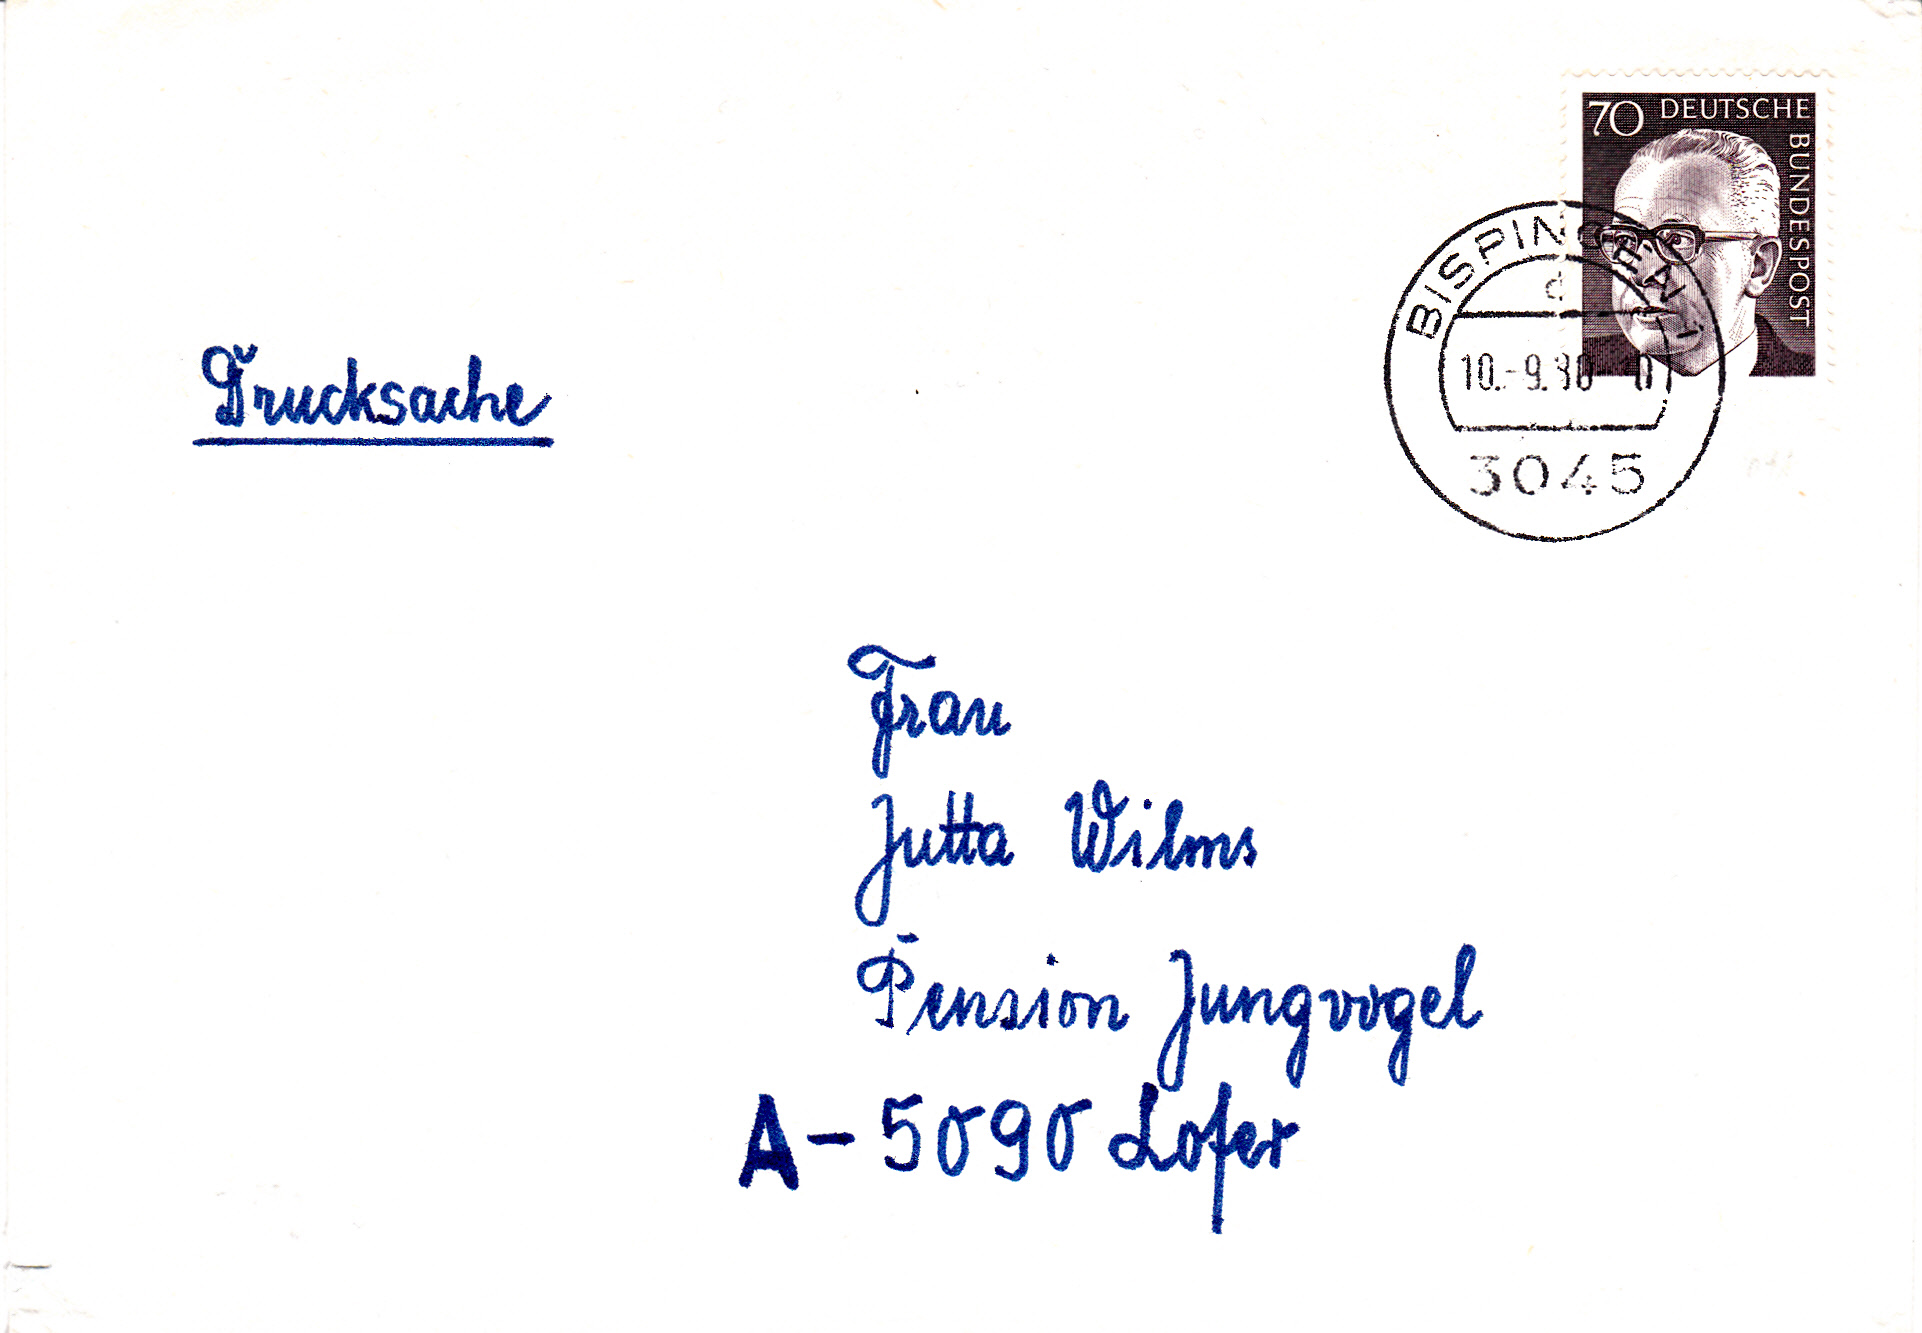 70 DEUTSCHE
BUNDESPOST
BISPINGEN
d
10.-9.80
3045
Drucksache
Frau
Jutta Wilms
Pension Jungvogel
A-5090 Lofer